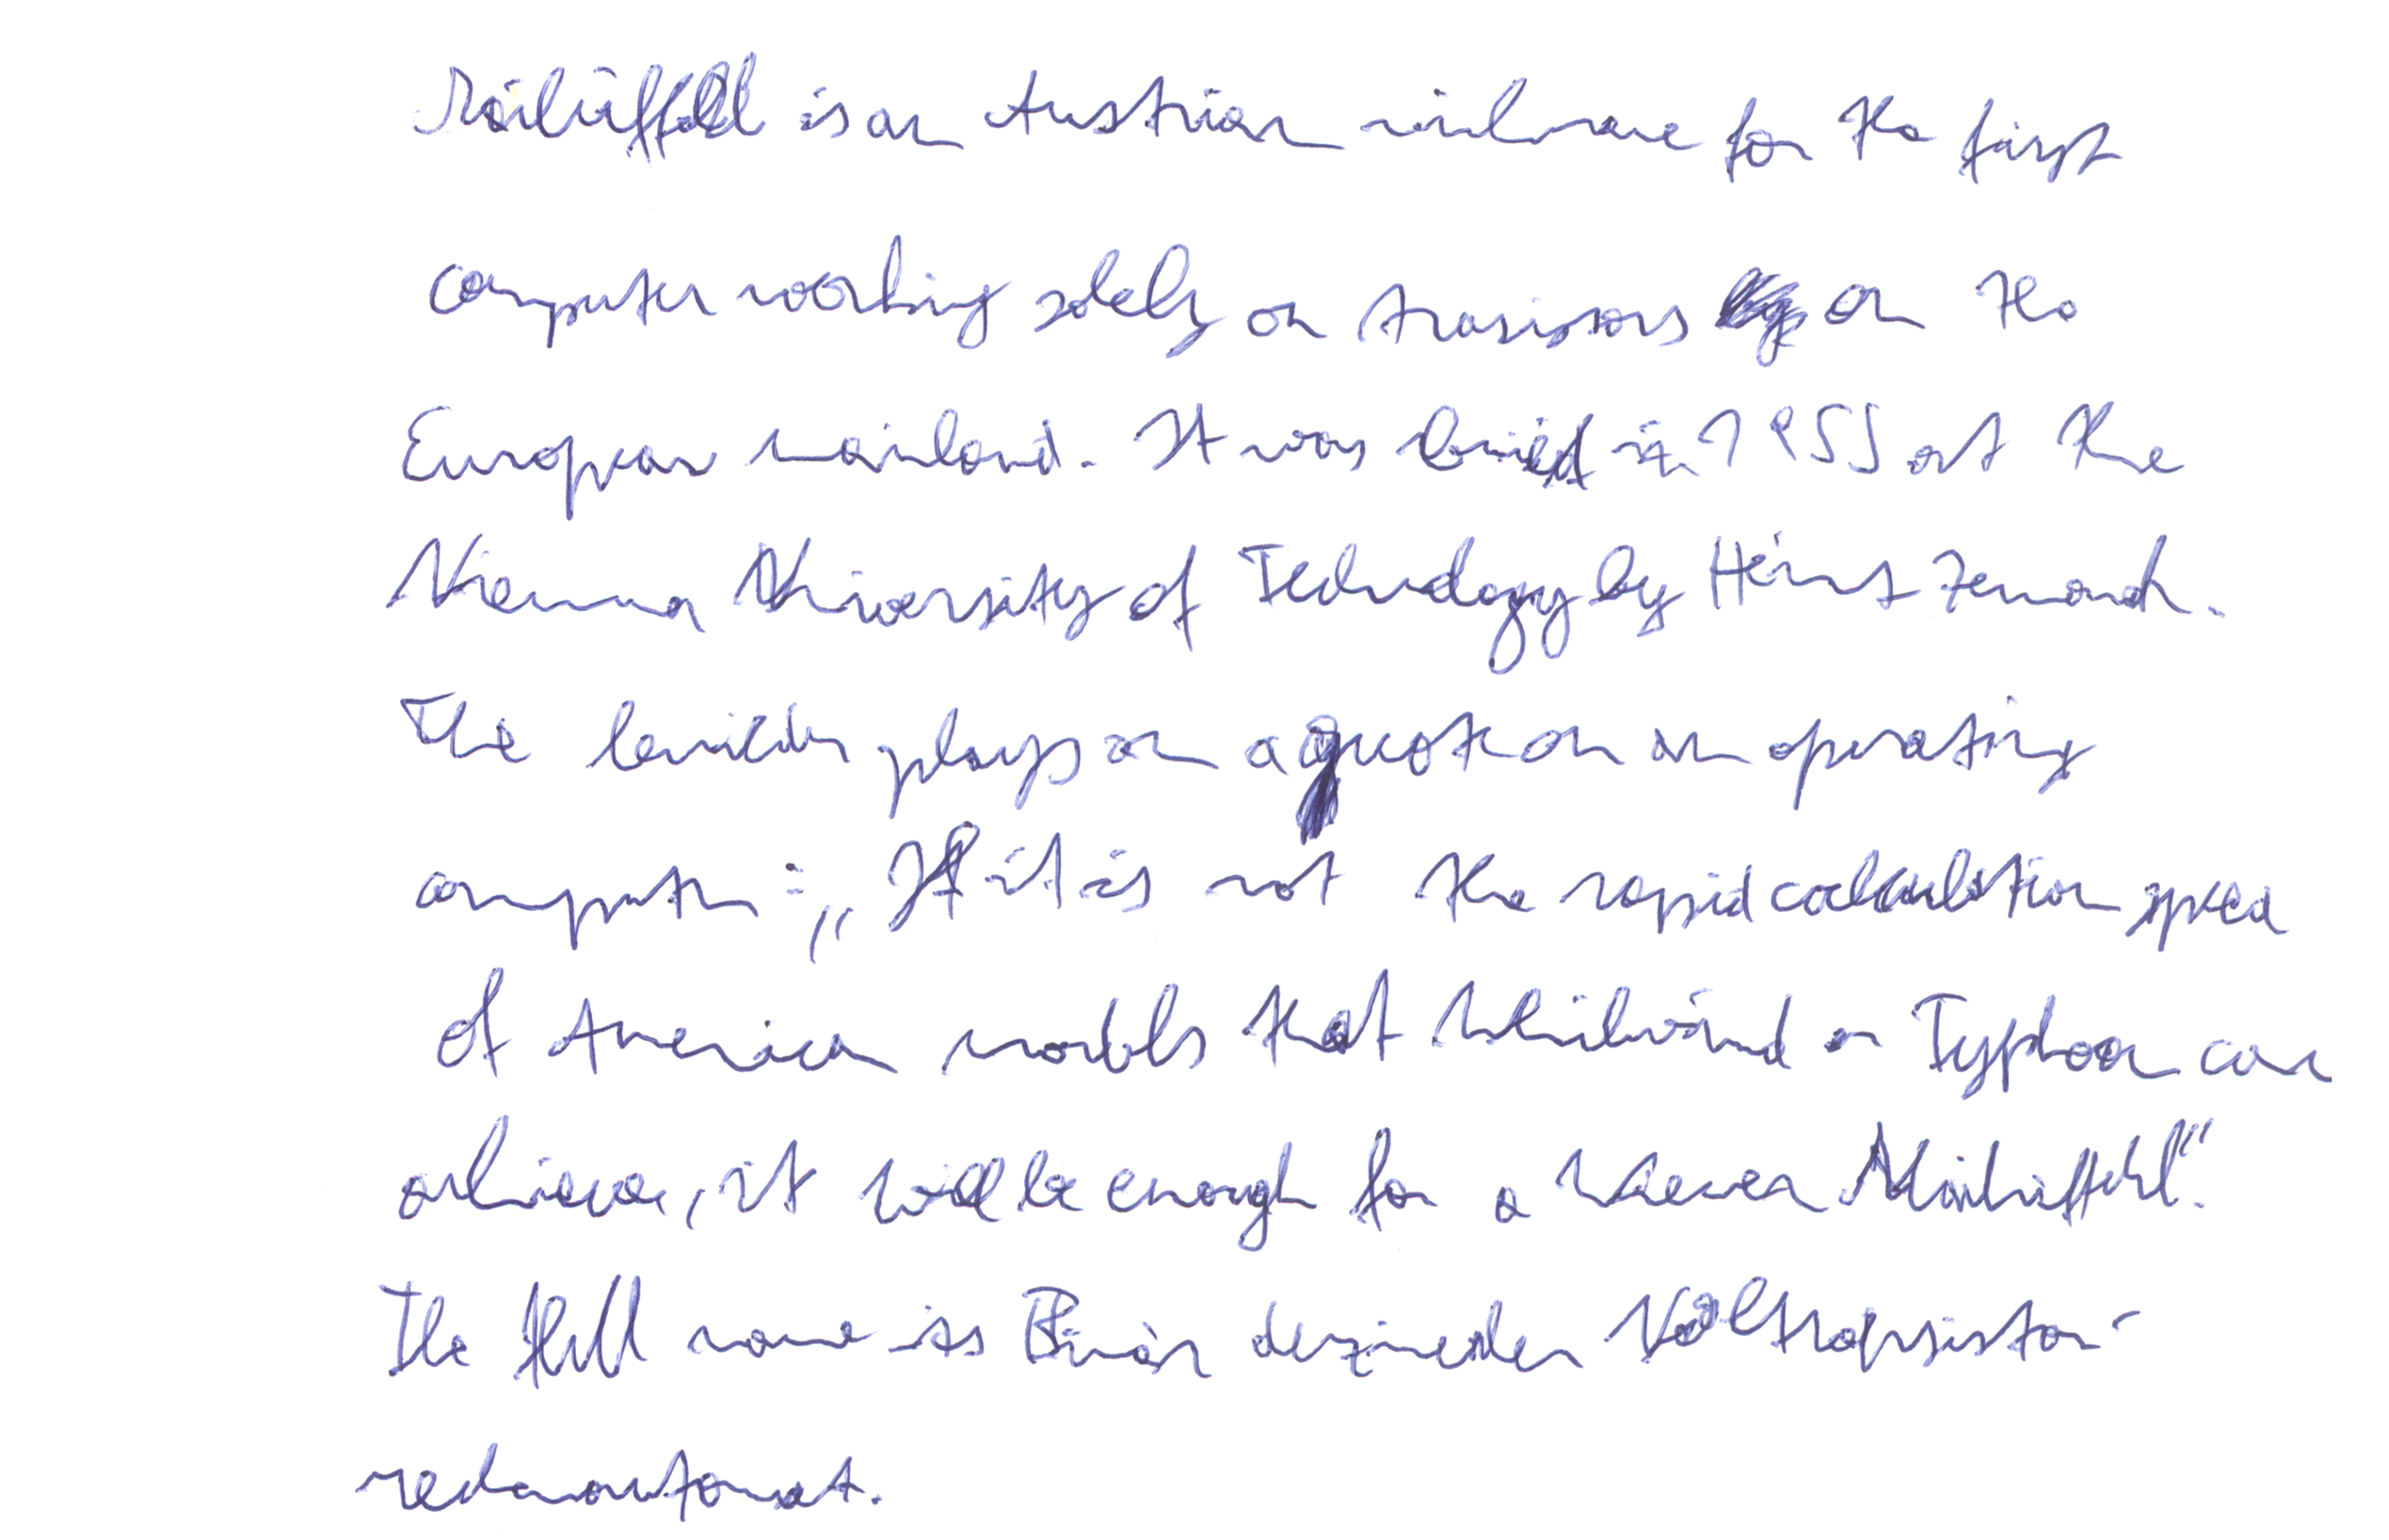 Mailüfterl is an Austrian nickname for the first
computer working solely on transistors on the
European mainland. It was build in 1955 at the
Vienna University of Technology by Heinz Zemanek.
The builder plays on a quote on an operating
computer: „If it is not the rapid calculation speed
of American models that Whirlwind or Typhoon can
achieve, it will be enough for a Wiener Mailüfterl".
The full name is Binär dezimaler Volltransistor-
rechenautomat.